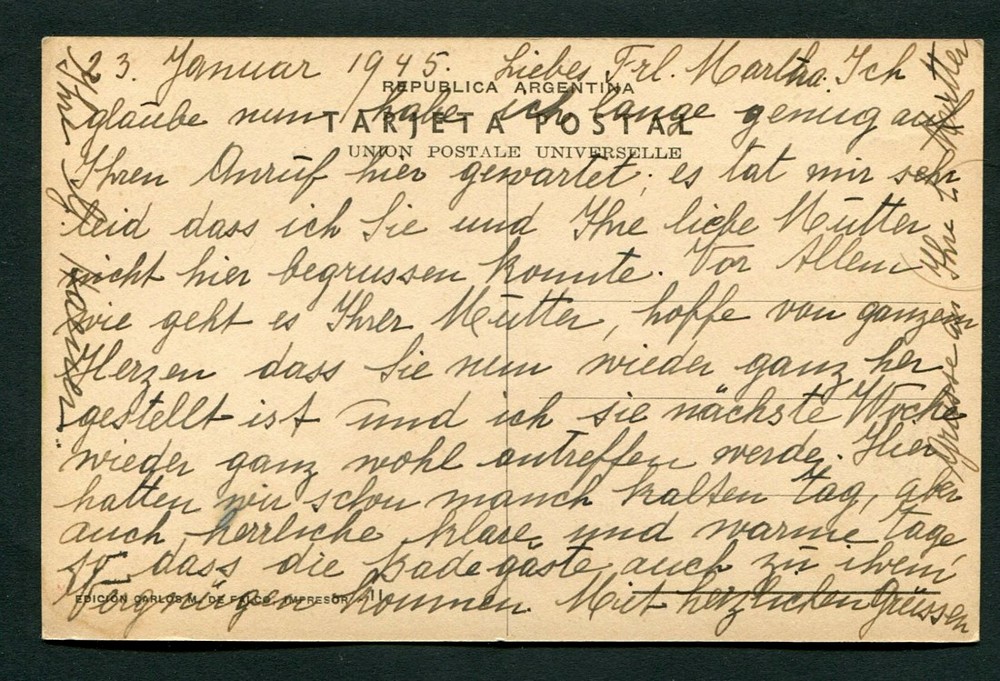 23. Januar 1945. Liebes Frl. Martha. Ich
REPUBLICA ARGENTINA
glaube nun habe ich lange genug auf
TARJETA POSTAL
UNION POSTALE UNIVERSELLE
Ihren Anruf hier gewartet; es tat mir sehr
leid dass ich Sie und Ihre liebe Mutter
nicht hier begrussen konnte. Vor Allem
wie geht es Ihrer Mutter, hoffe von ganzem
Herzen dass Sie nun wieder ganz her
gestellt ist und ich sie nächste Woche
wieder ganz wohl antreffen werde. Hier
hatten wir schon manch kalten Tag, aber
auch herrliche klare und warme Tage
so dass die Badegäste auch zu ihrem
EDICIÓN CARLOS M. DE FALCO, IMPRESOR - 11
Vergnügen kommen. Mit herzlichen Grüssen
Ihre
Grüsse an Ihre L. Mutter